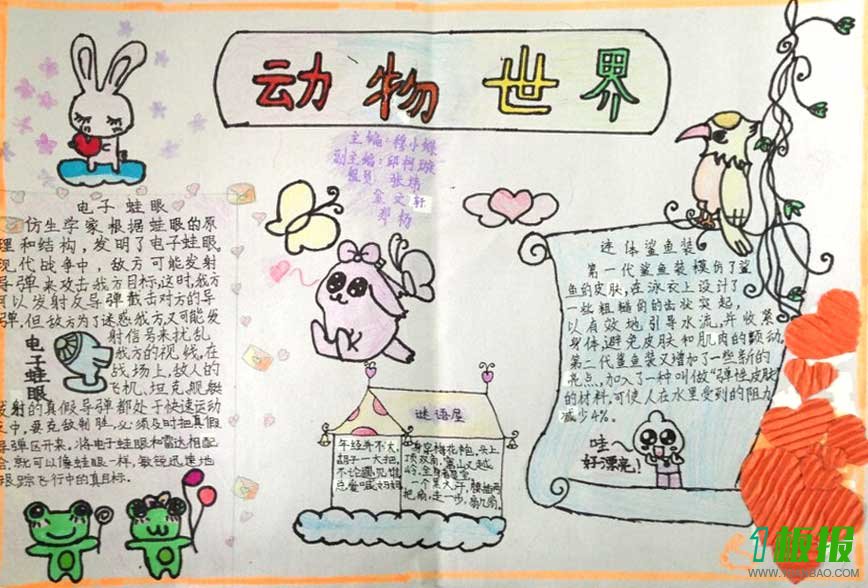 动物世界
主编:穆小娜
副主编:邱柯璇
组员 张炜
金文轩
郑杨
电子蛙眼
仿生学家根据蛙眼的原
理和结构,发明了电子蛙眼。
现代战争中,敌方可能发射
导弹来攻击我方目标,这时,我方
可以发射反导弹截击对方的导
弹,但敌方为了迷惑我方,又可能发
射信号来扰乱
我方的视线,在
战场上,敌人的
飞机,坦克,舰艇
发射的真假导弹都处于快速运动
之中,要克敌制胜,必须及时把真假
导弹区开来。将电子蛙眼和雷达相配
合,就可以像蛙眼一样,敏锐迅速地
跟踪飞行中的真目标。
电子蛙眼
谜语屋
年纪并不大,
胡子一大把。
不论遇见谁,
总爱喊妈妈。
身穿梅花袍,头上
顶双角,
一个黑大汉,腰插两
把扇,走一步,扇几扇。
迷体鲨鱼装
第一代鲨鱼装模仿了鲨
鱼的皮肤,在泳衣上设计了
一些粗糙的齿状突起,
以有效地引导水流,并收紧
身体,避免皮肤和肌肉的颤动。
第二代鲨鱼装又增加了一些新的
亮点,加入了一种叫做“弹性皮肤”
的材料,可使人在水里受到的阻力
减少4%。
哇~
好漂亮!
1板报
WWW.1BANBAO.COM